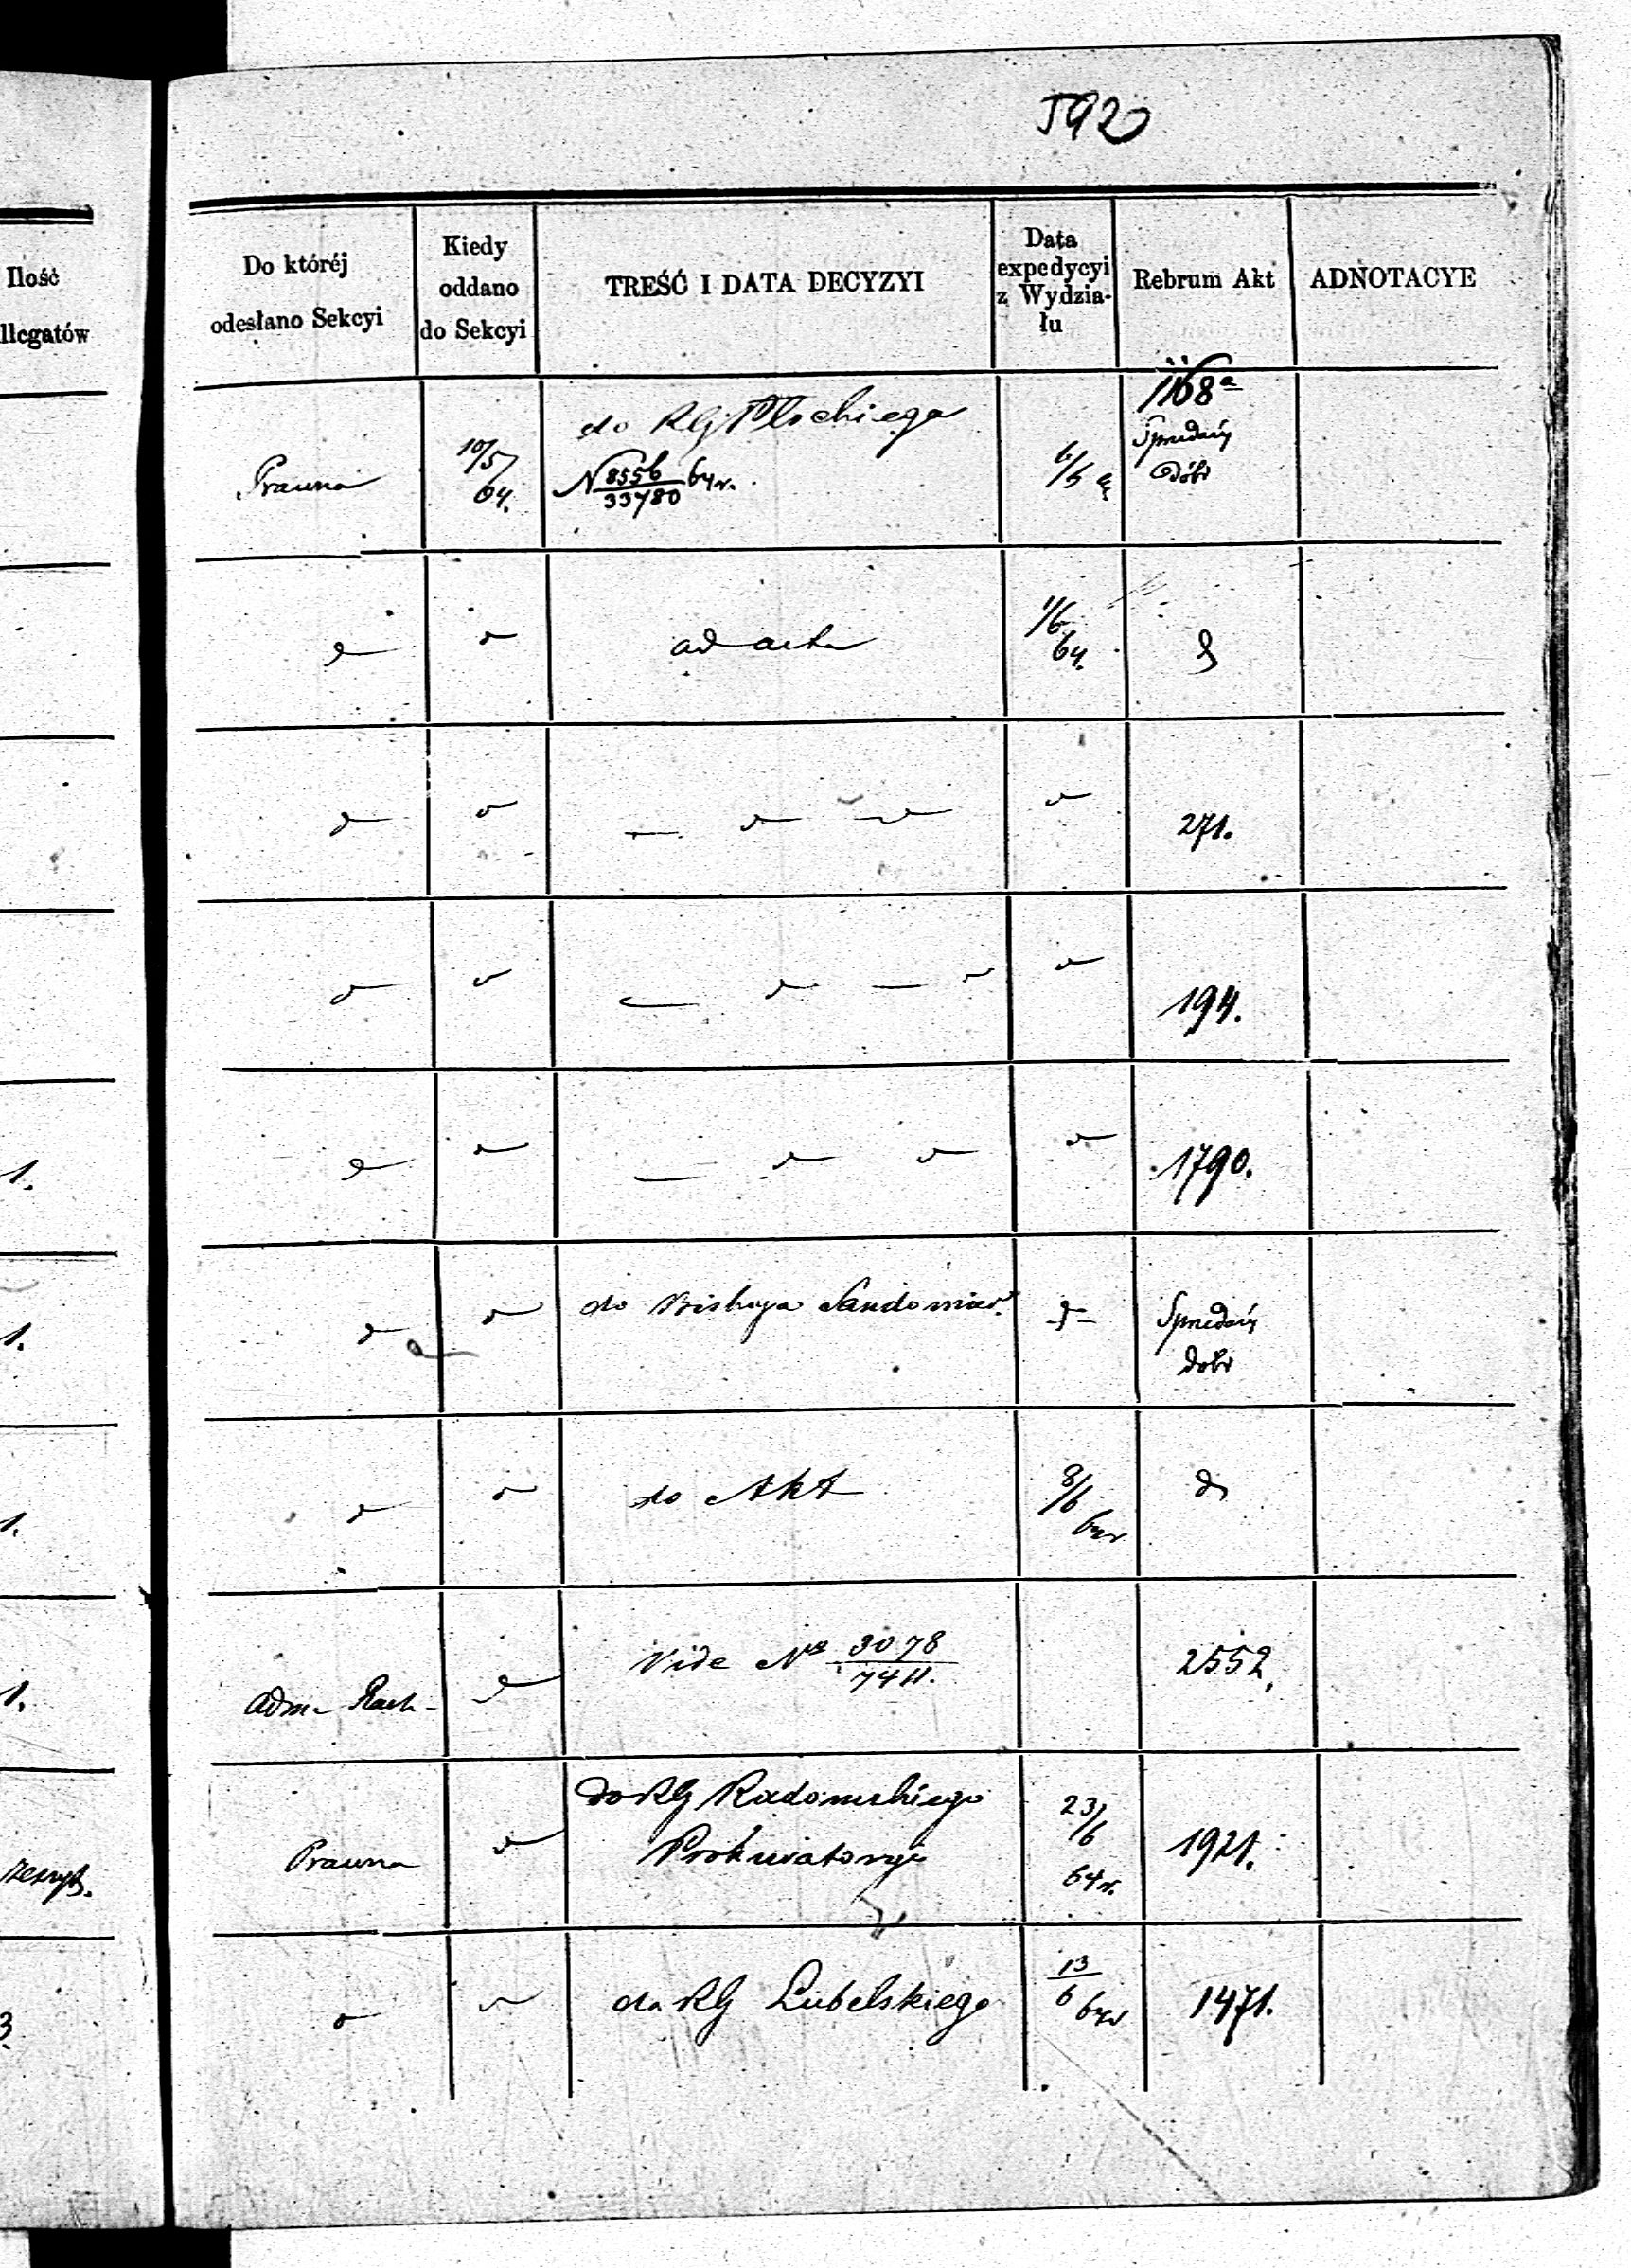 592
Ilość
llegatów
Do któréj
odesłano Sekcyi
Kiedy
oddano
do Sekcyi
TREŚĆ I DATA DECYZYI
Data
expedycyi
z Wydzia-
łu
Rebrum Akt
ADNOTACYE
Prawna
10/5
64.
do RG Płockiego
N 8556/33780 64r.
6/6
1168a
Sprzedaży
dóbr
ad acta
1/6
64.
271.
194.
1.
1790.
1.
do Biskupa Sandomier.
Sprzedaży
dóbr
1.
do Akt
8/6
64r
1.
Adm. Rach-
Vide No 3078/7411.
2552.
zeszyt.
Prawna
do RG Radomskiego
Prokuratoryi
23/6
64r.
1921.
3
do RG Lubelskiego
13/6 64r
1471.